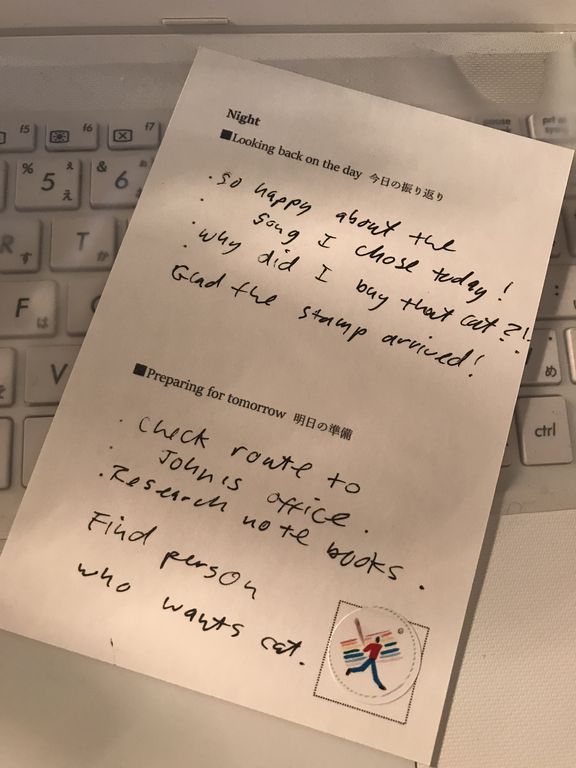 Night
■Looking back on the day 今日の振り返り
・so happy about the
・ song I chose today!
・why did I buy that cat?!.
Glad the stamp arrived!
■Preparing for tomorrow 明日の準備
・check route to
・ John's office.
・Research note books.
Find person
who wants cat.
f5
f6
f7
% 5 え ぇ
& 6
R す
T か
F は
V
め
ctrl